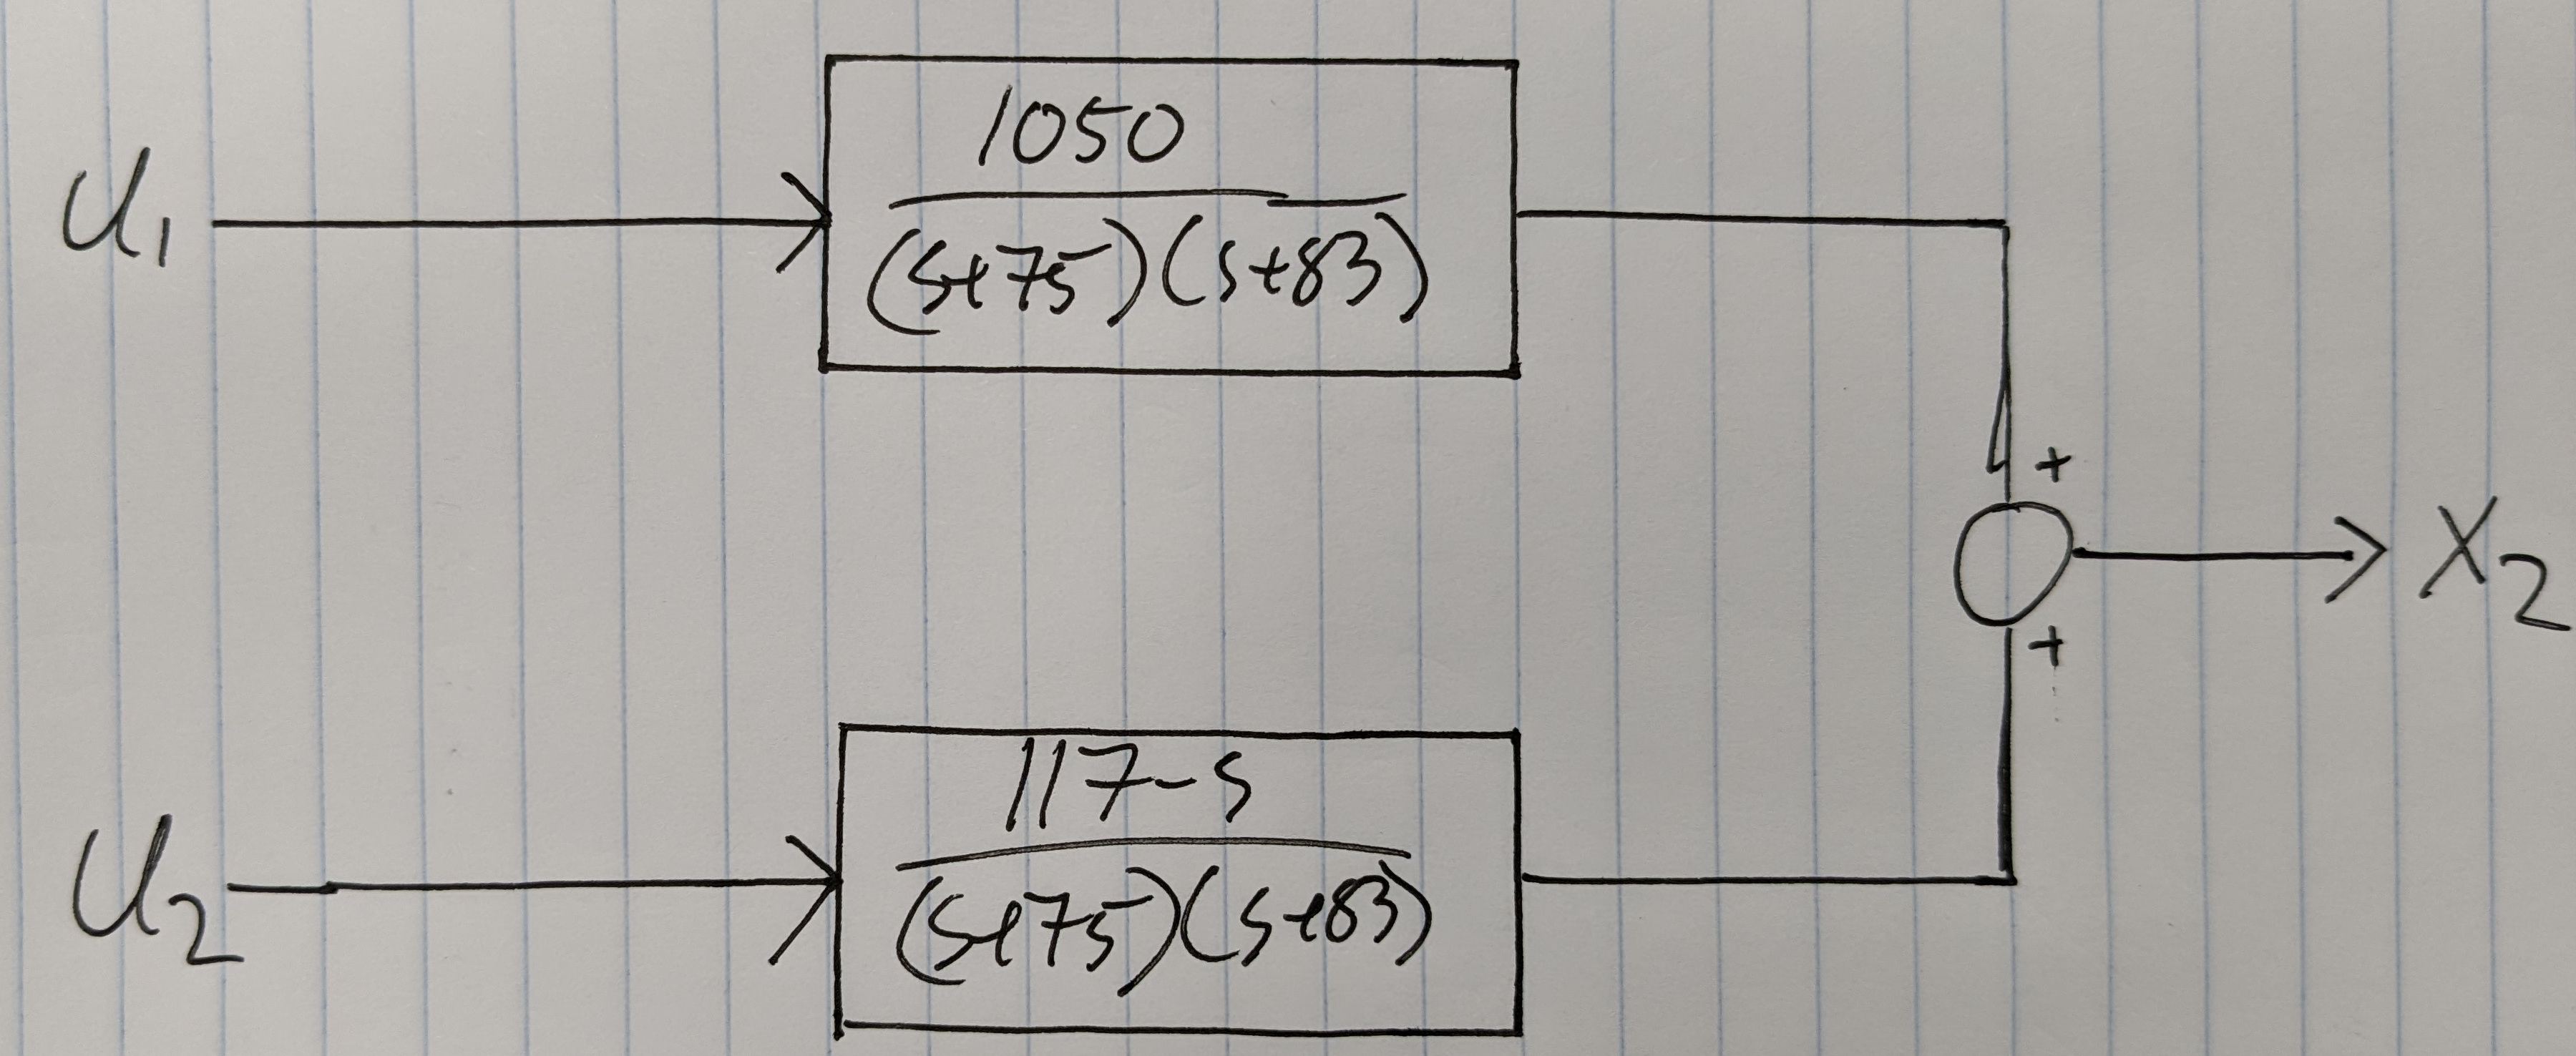 U₁
1050
(s+75)(s+83)
+
X₂
+
U₂
117-s
(s+75)(s+83)